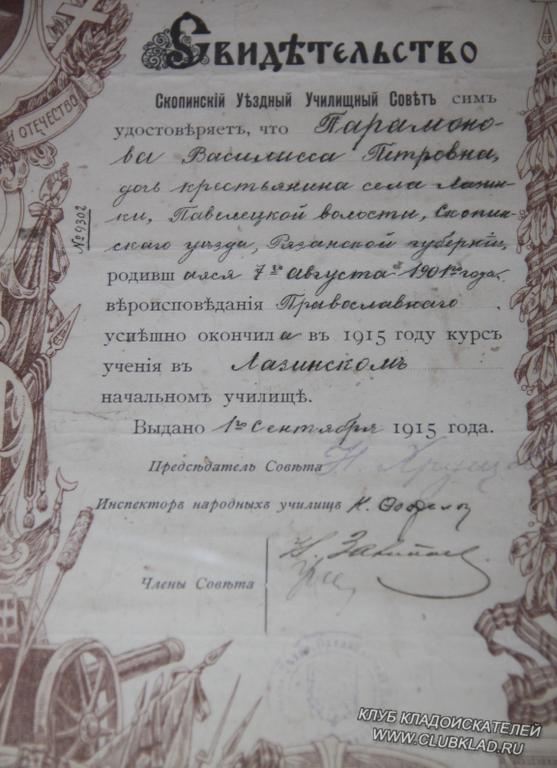 И ОТЕЧЕСТВО
№ 9302
Свидѣтельство
Скопинскій Уѣздный Училищный Совѣтъ симъ
удостовѣряетъ, что Парамоно-
ва Василисса Петровна,
дочь крестьянина села Лазин-
ки, Павелецкой волости, Скопин-
скаго уѣзда, Рязанской губерніи,
родивш аяся 7го Августа 1901го года,
вѣроисповѣданія Православнаго
успѣшно окончила въ 1915 году курсъ
ученія въ Лазинскомъ
начальномъ училищѣ.
Выдано 1го Сентября 1915 года.
Предсѣдатель Совѣта Н.
Инспекторъ народныхъ училищъ К.
Члены Совѣта
КЛУБ КЛАДОИСКАТЕЛЕЙ
WWW.CLUBKLAD.RU